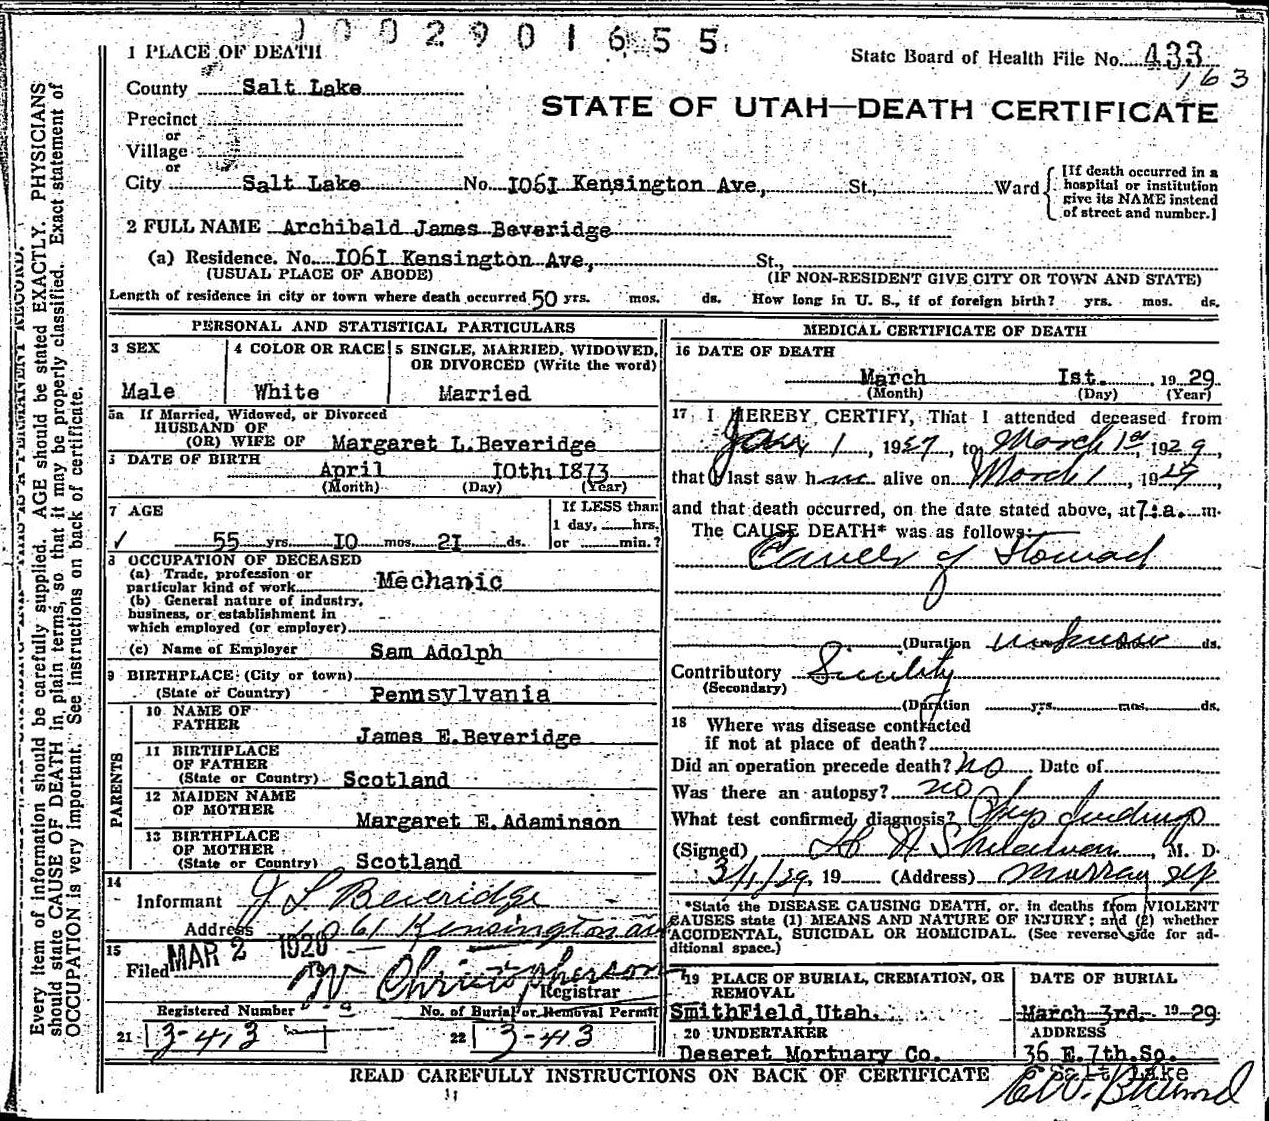 1002901655
1 PLACE OF DEATH
State Board of Health File No. 433
163
County Salt Lake
STATE OF UTAH—DEATH CERTIFICATE
Precinct
or
Village
or
City Salt Lake No. 1061 Kensington Ave, St., Ward
[If death occurred in a
hospital or institution
give its NAME instead
of street and number.]
2 FULL NAME Archibald James Beveridge
(a) Residence. No. 1061 Kensington Ave, St.,
(USUAL PLACE OF ABODE) (IF NON-RESIDENT GIVE CITY OR TOWN AND STATE)
Length of residence in city or town where death occurred 50 yrs. mos. ds. How long in U. S., if of foreign birth? yrs. mos. ds.
PERSONAL AND STATISTICAL PARTICULARS
3 SEX
Male
4 COLOR OR RACE
White
5 SINGLE, MARRIED, WIDOWED,
OR DIVORCED (Write the word)
Married
5a If Married, Widowed, or Divorced
HUSBAND OF
(OR) WIFE OF Margaret L.Beveridge
DATE OF BIRTH
April 10th. 1873
(Month) (Day) (Year)
7 AGE
55 yrs 10 mos. 21 ds.
If LESS than
1 day, hrs.
or min.?
8 OCCUPATION OF DECEASED
(a) Trade, profession or
particular kind of work Mechanic
(b) General nature of industry,
business, or establishment in
which employed (or employer)
(c) Name of Employer Sam Adolph
9 BIRTHPLACE (City or town)
(State or Country) Pennsylvania
PARENTS
10 NAME OF
FATHER James E.Beveridge
11 BIRTHPLACE
OF FATHER
(State or Country) Scotland
12 MAIDEN NAME
OF MOTHER Margaret E.Adaminson
13 BIRTHPLACE
OF MOTHER
(State or Country) Scotland
14
Informant J L Beveridge
Address 1061 Kensington av
15
Filed MAR 2 1929
W Christopherson
Registrar
Registered Number No. of Burial or Removal Permit
21 3-413 22 3-413
MEDICAL CERTIFICATE OF DEATH
16 DATE OF DEATH
March 1st. 1929
(Month) (Day) (Year)
17 I HEREBY CERTIFY, That I attended deceased from
Jan 1, 1927, to March 1st, 1929,
that I last saw him alive on March 1, 1929,
and that death occurred, on the date stated above, at 7:a. m.
The CAUSE DEATH* was as follows:
Cancer of Stomach
(Duration unknown ds.
Contributory Senility
(Secondary)
(Duration yrs. mos. ds.
18 Where was disease contracted
if not at place of death?
Did an operation precede death? no Date of
Was there an autopsy? no
What test confirmed diagnosis? Phys findings
(Signed) , M. D.
3/1/29, 19 (Address) Murray
*State the DISEASE CAUSING DEATH, or, in deaths from VIOLENT
CAUSES state (1) MEANS AND NATURE OF INJURY; and (2) whether
ACCIDENTAL, SUICIDAL OR HOMICIDAL. (See reverse side for ad-
ditional space.)
19 PLACE OF BURIAL, CREMATION, OR
REMOVAL
SmithField, Utah.
DATE OF BURIAL
March 3rd. 1929
20 UNDERTAKER
Deseret Mortuary Co.
ADDRESS
36 E.7th.So.
Salt Lake
READ CAREFULLY INSTRUCTIONS ON BACK OF CERTIFICATE
Every item of information should be carefully supplied. AGE should be stated EXACTLY. PHYSICIANS
should state CAUSE OF DEATH in plain terms, so that it may be properly classified. Exact statement of
OCCUPATION is very important. See instructions on back of certificate.